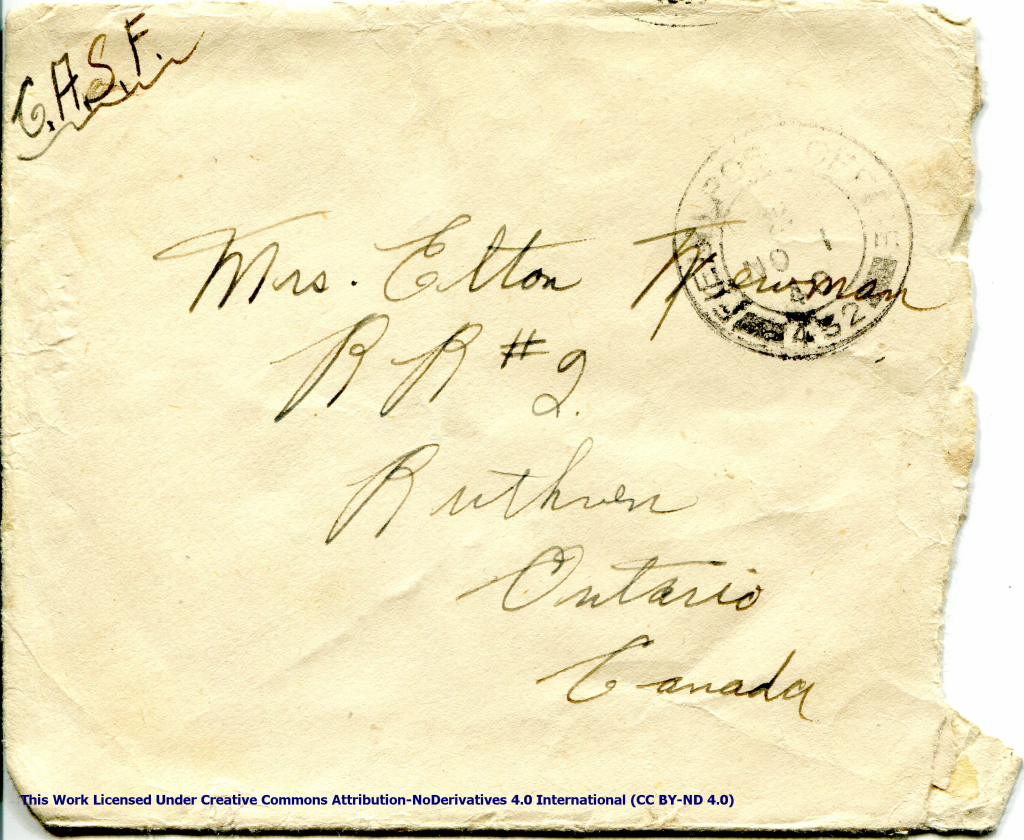 C.A.S.F.
FIELD POST OFFICE
NO 1
40
432
Mrs. Elton Newman
R R #2.
Ruthven
Ontario
Canada
This Work Licensed Under Creative Commons Attribution-NoDerivatives 4.0 International (CC BY-ND 4.0)